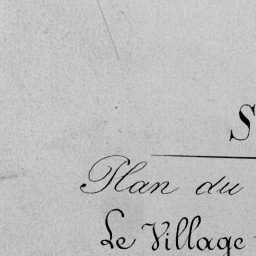 S
Plan du
Le Village